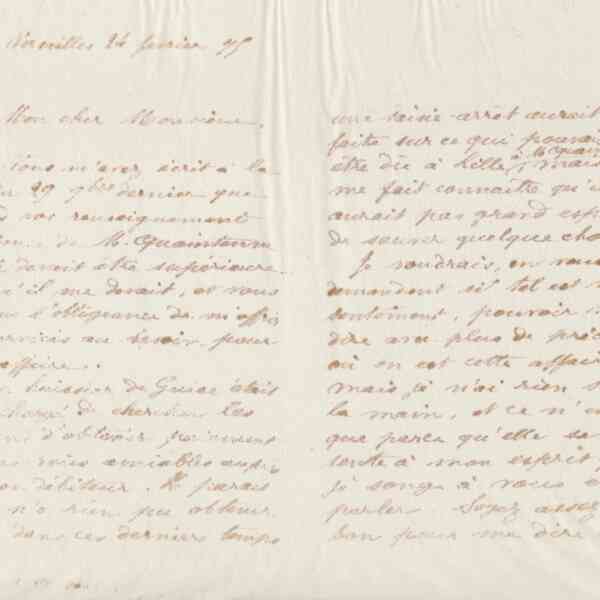 Versailles 24 février 75
Mon cher Monsieur,
vous m'avez écrit à la
29 9bre dernier que
vos renseignements
de M. Quaintenne
devait être supérieure
qu'il me devait, et vous
l'obligeance de m'offrir
services au besoin pour
affaire.
huissier de Guise était
chargé de chercher les
d'obtenir paiement
amiables
débiteur. Il parait
n'a rien pu obtenir
dans ces derniers temps
une saisie-arrêt aurait
faite sur ce qui pouvait
être dû à Lille à M. Quain
mais
me fait connaitre qu'il
aurait pas grand esp
de sauver quelque cho
Je voudrais, en vous
demandant si tel est
sentiment, pouvoir
dire avec plus de préc
où en est cette affai
mais je n'ai rien s
la main, et ce n'e
que parce qu'elle se
à mon esprit
je songe à vous e
parler. Soyez assez
bon pour me dire